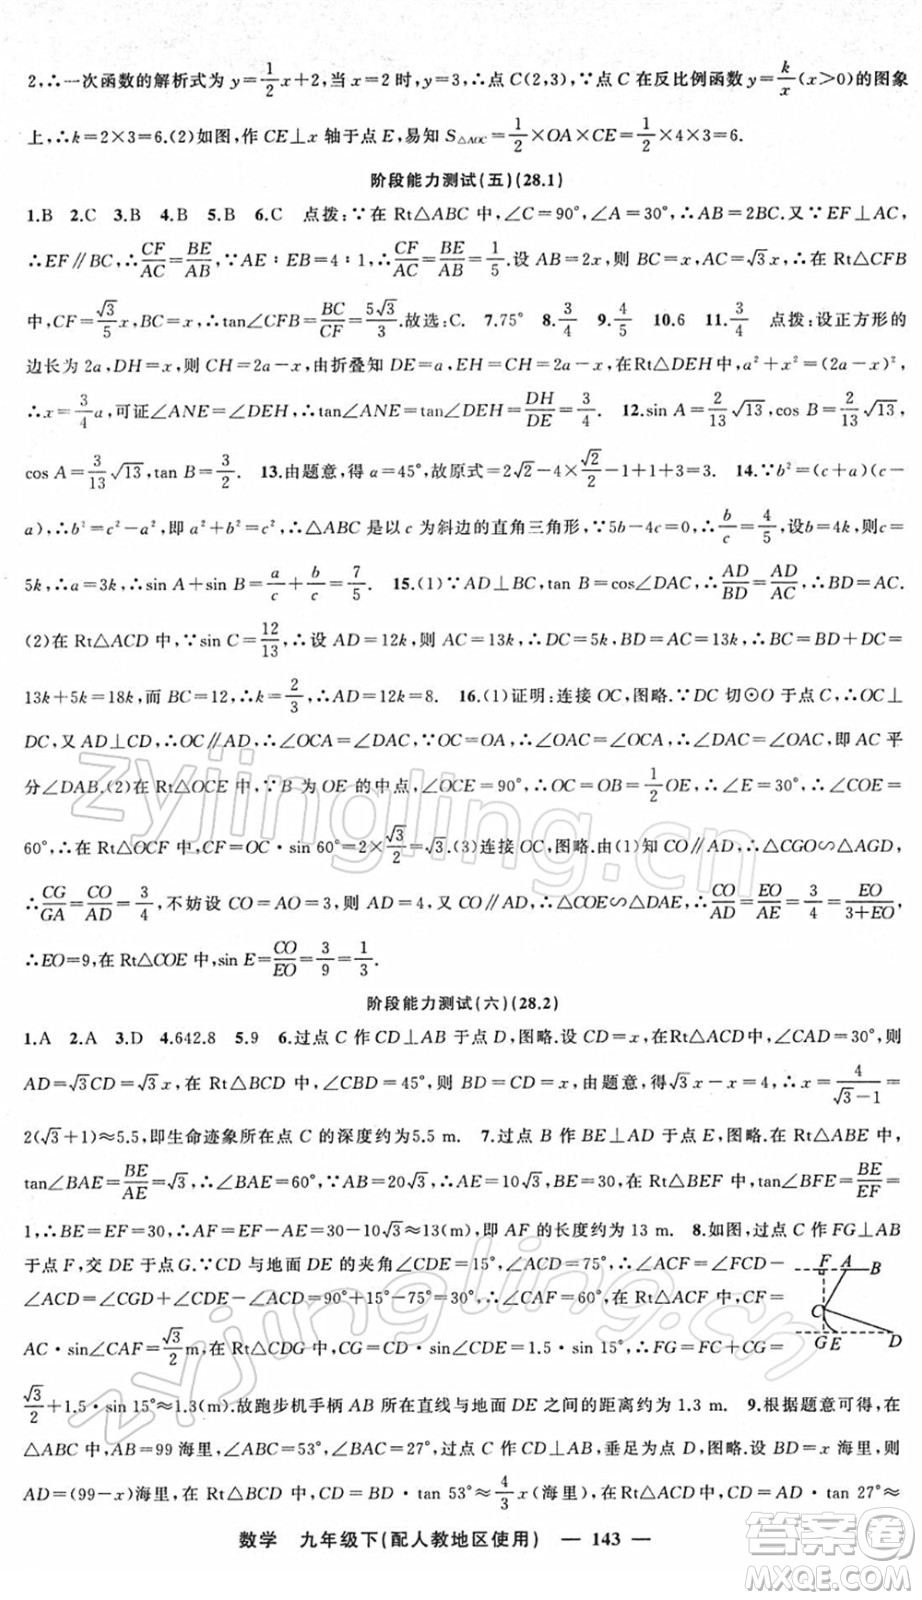 2,∴一次函数的解析式为 y=1/2x+2,当 x=2 时,y=3,∴点 C(2,3),∵点 C 在反比例函数 y=k/x(x>0)的图象
上,∴k=2×3=6.(2)如图,作 CE⊥x 轴于点 E,易知 S△AOC=1/2×OA×CE=1/2×4×3=6.
阶段能力测试(五)(28.1)
1.B 2.C 3.B 4.B 5.B 6.C 点拨:∵在 Rt△ABC 中,∠C=90°,∠A=30°,∴AB=2BC.又∵EF⊥AC,
∴EF∥BC,∴CF/AC=BE/AB,∵AE∶EB=4∶1,∴CF/AC=BE/AB=1/5.设 AB=2x,则 BC=x,AC=√3x,∴在 Rt△CFB
中,CF=√3/5x,BC=x,∴tan∠CFB=BC/CF=5√3/3.故选:C. 7.75° 8.3/4 9.4/5 10.6 11.3/4 点拨:设正方形的
边长为 2a,DH=x,则 CH=2a-x,由折叠知 DE=a,EH=CH=2a-x,在Rt△DEH中,a²+x²=(2a-x)²,
∴x=3/4a,可证∠ANE=∠DEH,∴tan∠ANE=tan∠DEH=DH/DE=3/4. 12.sin A=2/13√13,cos B=2/13√13,
cos A=3/13√13,tan B=3/2. 13.由题意,得 α=45°,故原式=2√2-4×√2/2-1+1+3=3. 14.∵b²=(c+a)(c-
a),∴b²=c²-a²,即 a²+b²=c²,∴△ABC 是以 c 为斜边的直角三角形,∵5b-4c=0,∴b/c=4/5,设b=4k,则c=
5k,∴a=3k,∴sin A+sin B=a/c+b/c=7/5. 15.(1)∵AD⊥BC,tan B=cos∠DAC,∴AD/BD=AD/AC,∴BD=AC.
(2)在 Rt△ACD 中,∵sin C=12/13,∴设 AD=12k,则 AC=13k,∴DC=5k,BD=AC=13k,∴BC=BD+DC=
13k+5k=18k,而 BC=12,∴k=2/3,∴AD=12k=8. 16.(1)证明:连接 OC,图略.∵DC 切⊙O 于点 C,∴OC⊥
DC,又 AD⊥CD,∴OC∥AD,∴∠OCA=∠DAC,∵OC=OA,∴∠OAC=∠OCA,∴∠DAC=∠OAC,即 AC 平
分∠DAB.(2)在 Rt△OCE 中,∵B 为 OE 的中点,∠OCE=90°,∴OC=OB=1/2OE,∴∠E=30°,∴∠COE=
60°,∴在 Rt△OCF 中,CF=OC·sin 60°=2×√3/2=√3.(3)连接 OC,图略.由(1)知 CO∥AD,∴△CGO∽△AGD,
∴CG/GA=CO/AD=3/4,不妨设 CO=AO=3,则 AD=4,又 CO∥AD,∴△COE∽△DAE,∴CO/AD=EO/AE=3/4=EO/3+EO,
∴EO=9,在 Rt△COE 中,sin E=CO/EO=3/9=1/3.
阶段能力测试(六)(28.2)
1.A 2.A 3.D 4.642.8 5.9 6.过点 C 作 CD⊥AB 于点 D,图略.设 CD=x,在Rt△ACD中,∠CAD=30°,则
AD=√3CD=√3x,在 Rt△BCD 中,∠CBD=45°,则 BD=CD=x,由题意,得√3x-x=4,∴x=4/√3-1=
2(√3+1)≈5.5,即生命迹象所在点 C 的深度约为5.5 m. 7.过点 B 作 BE⊥AD 于点 E,图略.在 Rt△ABE 中,
tan∠BAE=BE/AE=√3,∴∠BAE=60°,∵AB=20√3,∴AE=10√3,BE=30,在 Rt△BEF 中,tan∠BFE=BE/EF=
1,∴BE=EF=30,∴AF=EF-AE=30-10√3≈13(m),即 AF 的长度约为 13 m. 8.如图,过点 C 作 FG⊥AB
于点 F,交 DE 于点 G.∵CD 与地面 DE 的夹角∠CDE=15°,∠ACD=75°,∴∠ACF=∠FCD-
∠ACD=∠CGD+∠CDE-∠ACD=90°+15°-75°=30°,∴∠CAF=60°,在 Rt△ACF 中,CF=
AC·sin∠CAF=√3/2m,在 Rt△CDG 中,CG=CD·sin∠CDE=1.5·sin 15°,∴FG=FC+CG=
√3/2+1.5·sin 15°≈1.3(m).故跑步机手柄 AB 所在直线与地面 DE 之间的距离约为 1.3 m. 9.根据题意可得,在
△ABC 中,AB=99 海里,∠ABC=53°,∠BAC=27°,过点 C 作 CD⊥AB,垂足为点 D,图略.设 BD=x 海里,则
AD=(99-x)海里,在 Rt△BCD 中,CD=BD·tan 53°≈4/3x(海里),在 Rt△ACD 中,CD=AD·tan 27°≈
F A B
C
G E D
数学 九年级下(配人教地区使用) — 143 —
zyjingling.cn
zyjingling.cn
答案圈
MXQE.COM